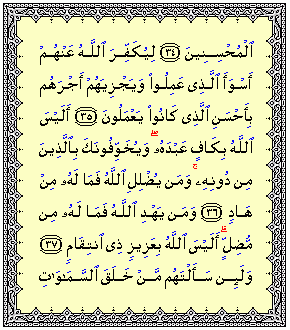 ٱلْمُحْسِنِينَ ﴿٣٤﴾ لِيُكَفِّرَ ٱللَّهُ عَنْهُمْ
أَسْوَأَ ٱلَّذِى عَمِلُوا۟ وَيَجْزِيَهُمْ أَجْرَهُم
بِأَحْسَنِ ٱلَّذِى كَانُوا۟ يَعْمَلُونَ ﴿٣٥﴾ أَلَيْسَ
ٱللَّهُ بِكَافٍ عَبْدَهُۥ ۖ وَيُخَوِّفُونَكَ بِٱلَّذِينَ
مِن دُونِهِۦ ۚ وَمَن يُضْلِلِ ٱللَّهُ فَمَا لَهُۥ مِنْ
هَادٍ ﴿٣٦﴾ وَمَن يَهْدِ ٱللَّهُ فَمَا لَهُۥ مِن
مُّضِلٍّ ۗ أَلَيْسَ ٱللَّهُ بِعَزِيزٍ ذِى ٱنتِقَامٍ ﴿٣٧﴾
وَلَئِن سَأَلْتَهُم مَّنْ خَلَقَ ٱلسَّمَٰوَٰتِ